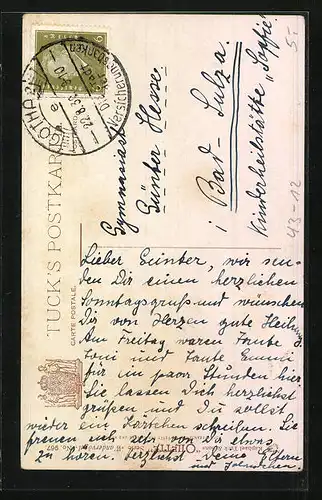 GOTHA
Versicherungsbanken
TUCK'S POSTKAR
CARTE POSTALE.
Gymnasiast
Günter Hesse
i Bad-Sulza.
Kinderheilstätte "Sofie"
5-
43-12
Lieber Günter, wir sen-
den Dir einen herzlichen
Sonntagsgruß und wünschen
Dir von Herzen gute Heilung.
Am Freitag waren Tante
Toni und Tante Emmli
für ein paar Stunden hier.
Sie lassen Dich herzlichst
grüßen und Du sollst
wieder ein Kärtchen schreiben. Sie
freuen sich sehr von Dir etwas
zu hören. Herzlichst Deine Eltern
und